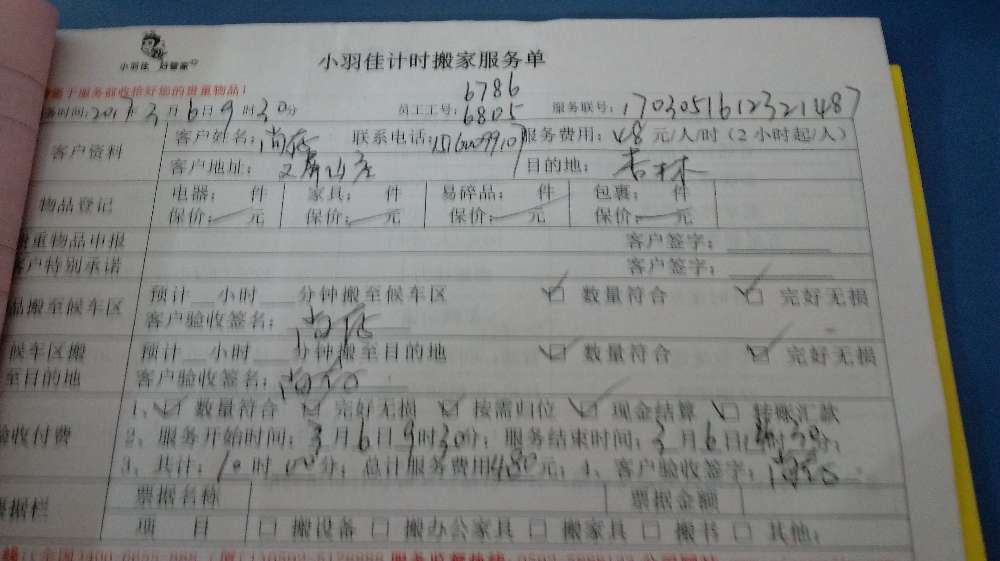 小羽佳 好管家
小羽佳计时搬家服务单
于服务前收拾好您的贵重物品!
6786
务时间:2017年3月6日9时30分 员工工号:6805 服务联号:170305161232 1487
客户资料 客户姓名: 联系电话: 服务费用:48元/人/时(2小时起/人)
客户地址: 目的地:杏林
物品登记 电器: 件 家具: 件 易碎品: 件 包裹: 件
保价: 元 保价: 元 保价: 元 保价: 元
重物品申报 客户签字:
户特别承诺 客户签字:
品搬至候车区 预计 小时 分钟搬至候车区 数量符合 完好无损
客户验收签名:
候车区搬至目的地 预计 小时 分钟搬至目的地 数量符合 完好无损
客户验收签名:
验收付费 1、数量符合 完好无损 按需归位 现金结算 转账汇款
2、服务开始时间:3月6日9时30分;服务结束时间:3月6日 时30分;
3、共计:10时00分;总计服务费用480元;4、客户验收签字:
票据栏 票据名称 票据金额
项 目 搬设备 搬办公家具 搬家具 搬书 其他: